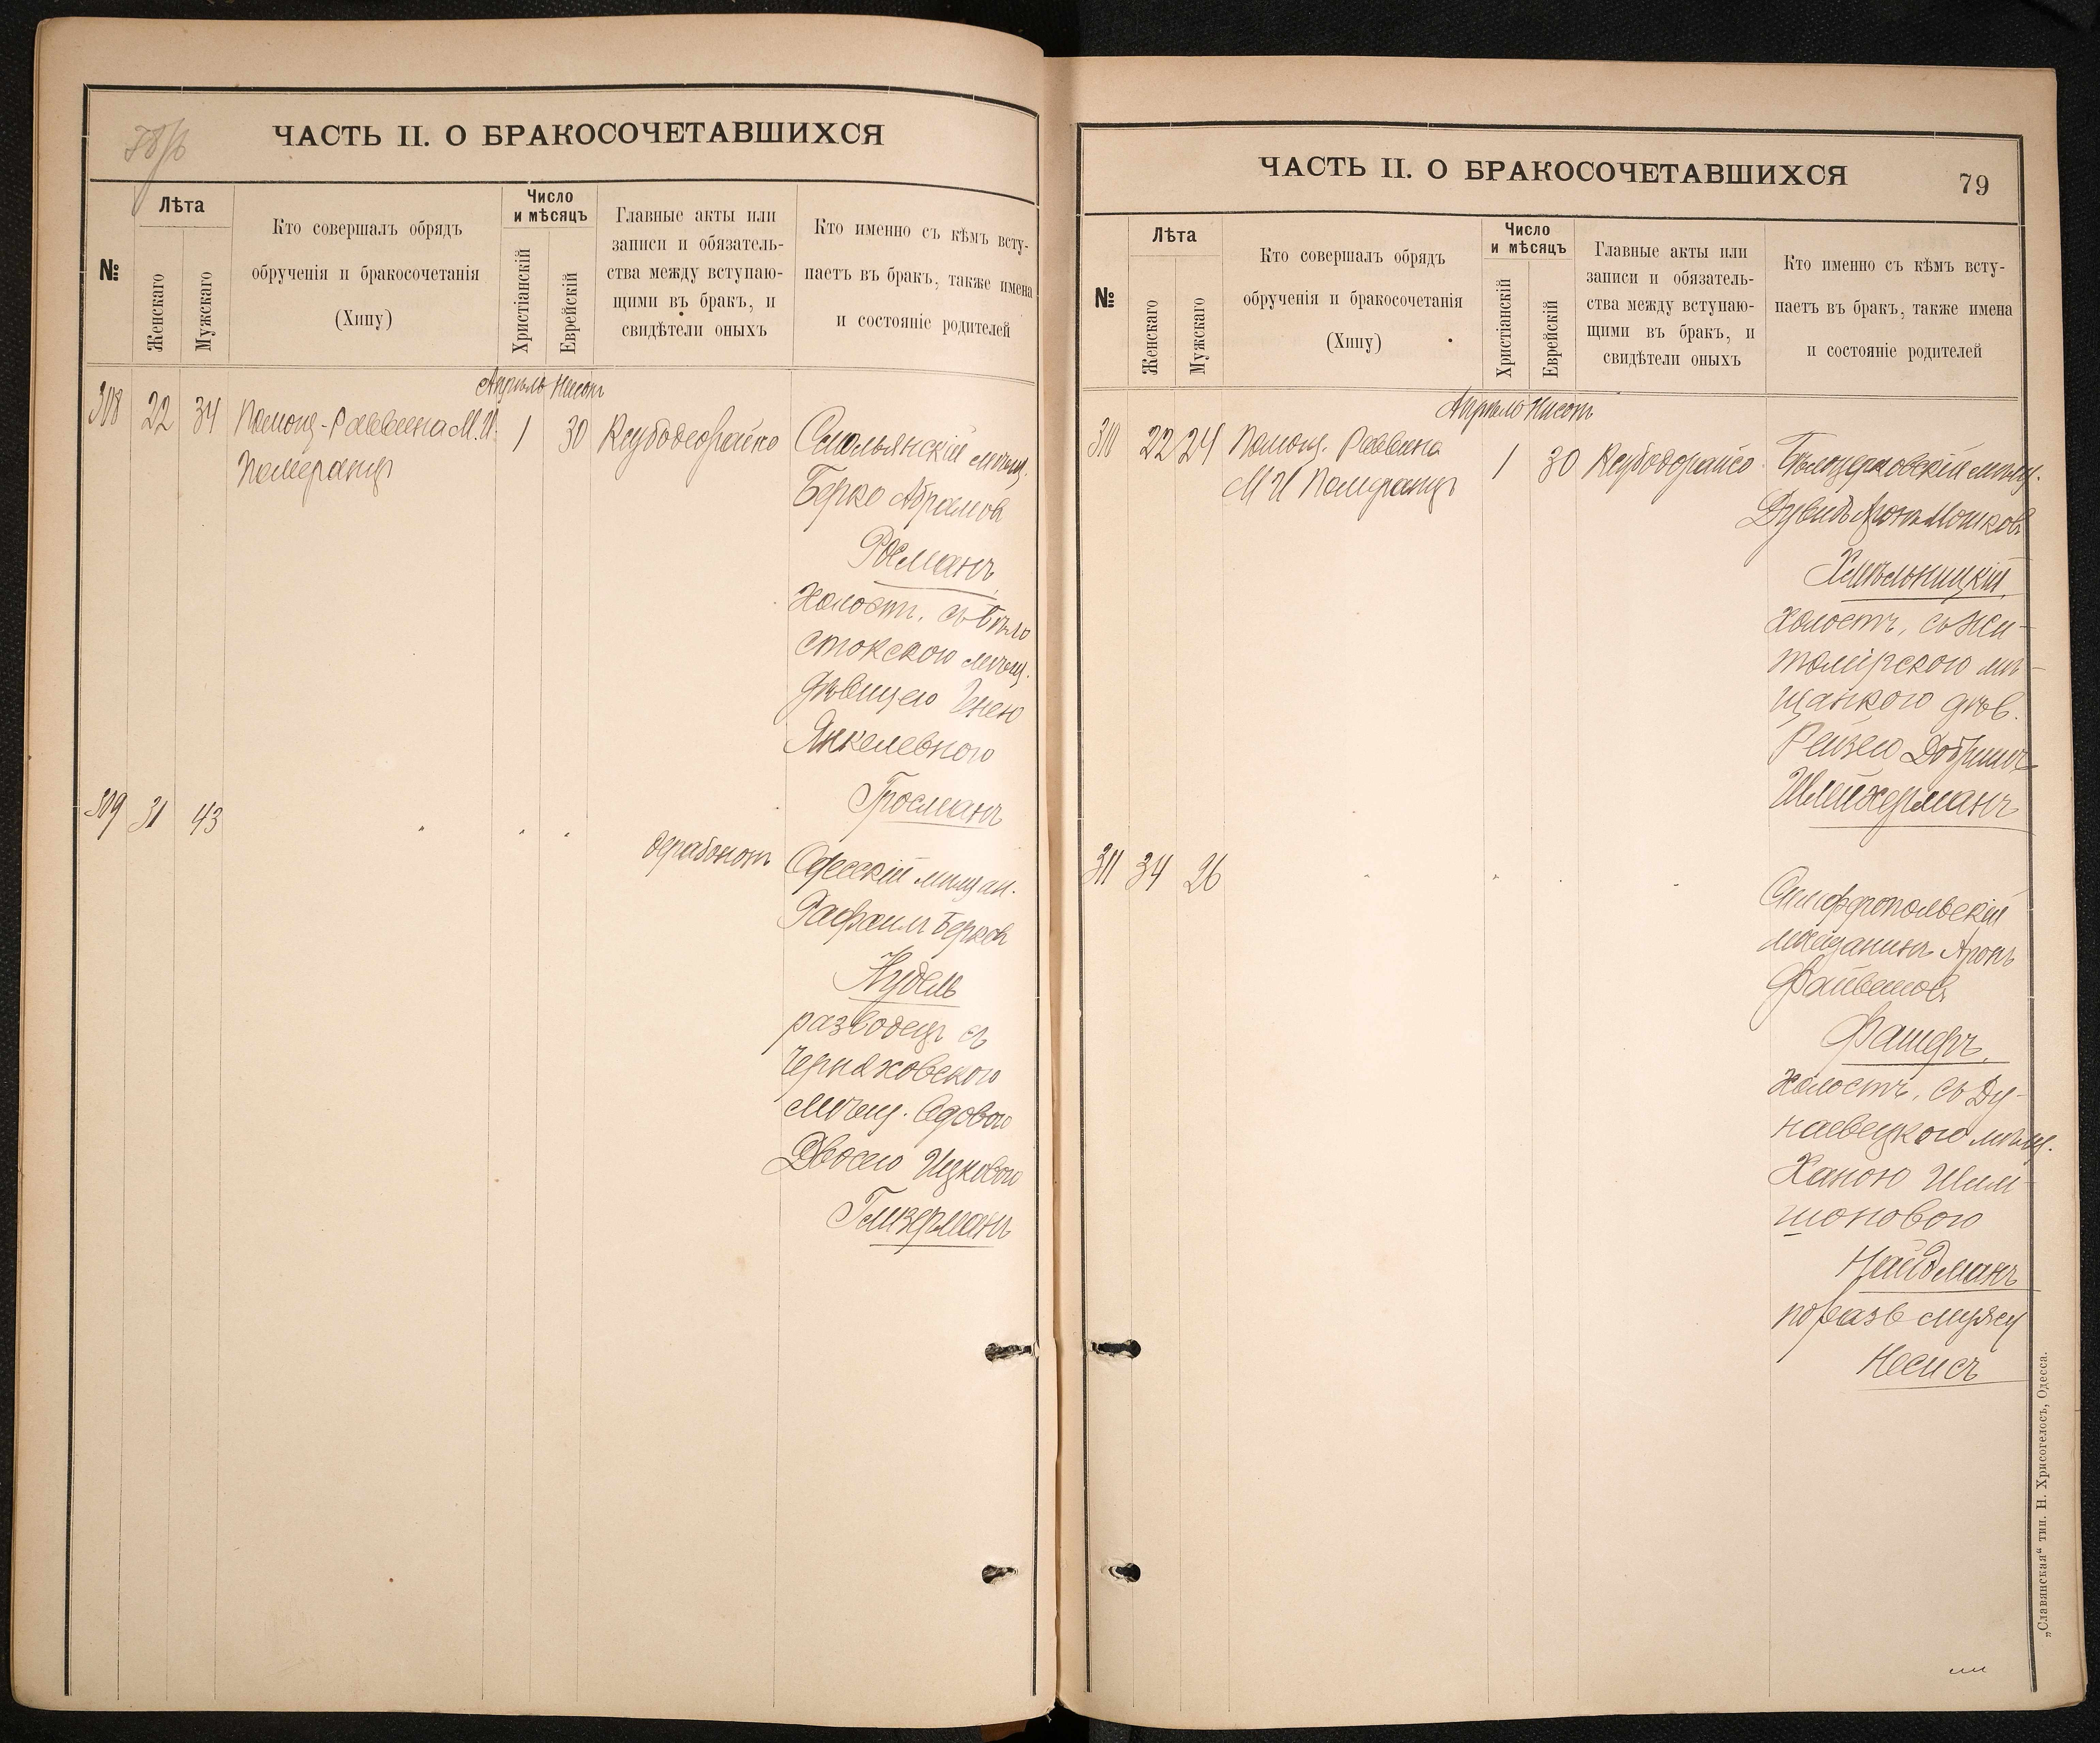 ЧАСТЬ II. О БРАКОСОЧЕТАВШИХСЯ
№
Лѣта
Женскаго
Мужскаго
Кто совершалъ обрядъ
обрученія и бракосочетанія
(Хипу)
Число
и мѣсяцъ
Христіанскій
Еврейскій
Главные акты или
записи и обязатель-
ства между вступаю-
щими въ бракъ, и
свидѣтели оныхъ
Кто именно съ кѣмъ всту-
паетъ въ бракъ, также имена
и состояніе родителей
Апрѣль Нисонъ
308 22 34 Помощ-Раввина М.И.
Померанцъ
1 30
Смольянскій мѣщ.
Берко Абрамов
Росманъ
Холостъ, съ Бѣло
стокскою мѣщ.
дѣвицею Енею
Янкелевною
Гросманъ
309 31 43
Одесскій мѣщан.
Рафаилъ Берков
Нудель
разводецъ съ
Черняховскою
мѣщ. вдовою
Двосею Ицковою
Глизерманъ
ЧАСТЬ II. О БРАКОСОЧЕТАВШИХСЯ
79
№
Лѣта
Женскаго
Мужскаго
Кто совершалъ обрядъ
обрученія и бракосочетанія
(Хипу)
Число
и мѣсяцъ
Христіанскій
Еврейскій
Главные акты или
записи и обязатель-
ства между вступаю-
щими въ бракъ, и
свидѣтели оныхъ
Кто именно съ кѣмъ всту-
паетъ въ бракъ, также имена
и состояніе родителей
Апрѣль Нисонъ
310 22 24 Помощ. Раввина
М И Померанцъ
1 30
Бѣлоцерковскій мѣщ.
Дувидъ Аронъ Мошков
Хмѣльницкій,
холостъ, съ Жи-
томірскою мѣ-
щанкою дѣв.
Рейзею Добришъ
Шлейхерманъ
311 34 26
Симферопольскій
мѣщанинъ Аронъ
Файвелов
Фашеръ,
холостъ, съ Ду-
наевецкою мѣщ.
Ханою Шим-
шоновою
Найдманъ
по разв мужу
Несисъ
„Славянская“ тип. Н. Хрисогелосъ, Одесса.